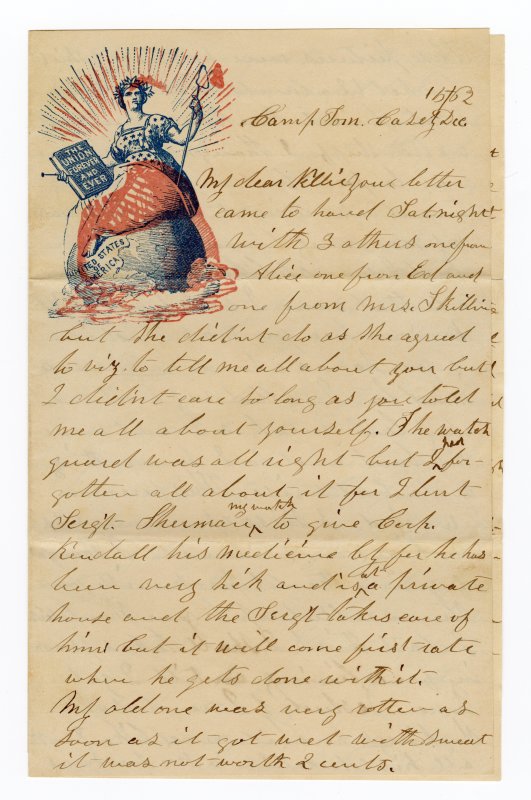 THE
UNION
FOREVER
AND
EVER
UNITED STATES
OF
AMERICA
15/62
Camp Tom. Casey Dec
My dear Nellie your letter
came to hand Sat. night
with 3 others one from
Alice one from Ed and
one from Mrs. Skillins
but she didn't do as she agreed
to viz. to tell me all about you but
I didn't care so long as you told
me all about yourself. The watch
guard was all right but I had for-
gotten all about it for I lent
Sergt. Sherman my watch to give Corp.
Kendall his medicine by for he has
been very sick and is at a private
house and the Sergt takes care of
him: but it will come first rate
when he gets done with it.
My old one was very rotten as
soon as it got wet with sweat
it was not worth 2 cents.